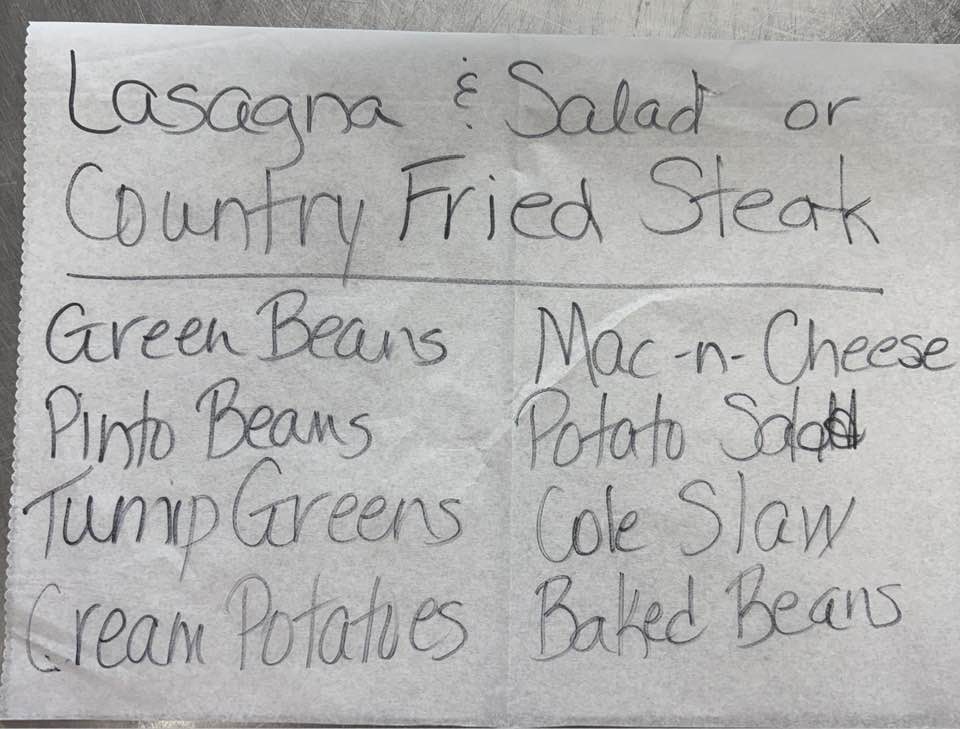 Lasagna & Salad or
Country Fried Steak
Green Beans
Pinto Beans
Turnip Greens
Cream Potatoes
Mac-n-Cheese
Potato Salad
Cole Slaw
Baked Beans